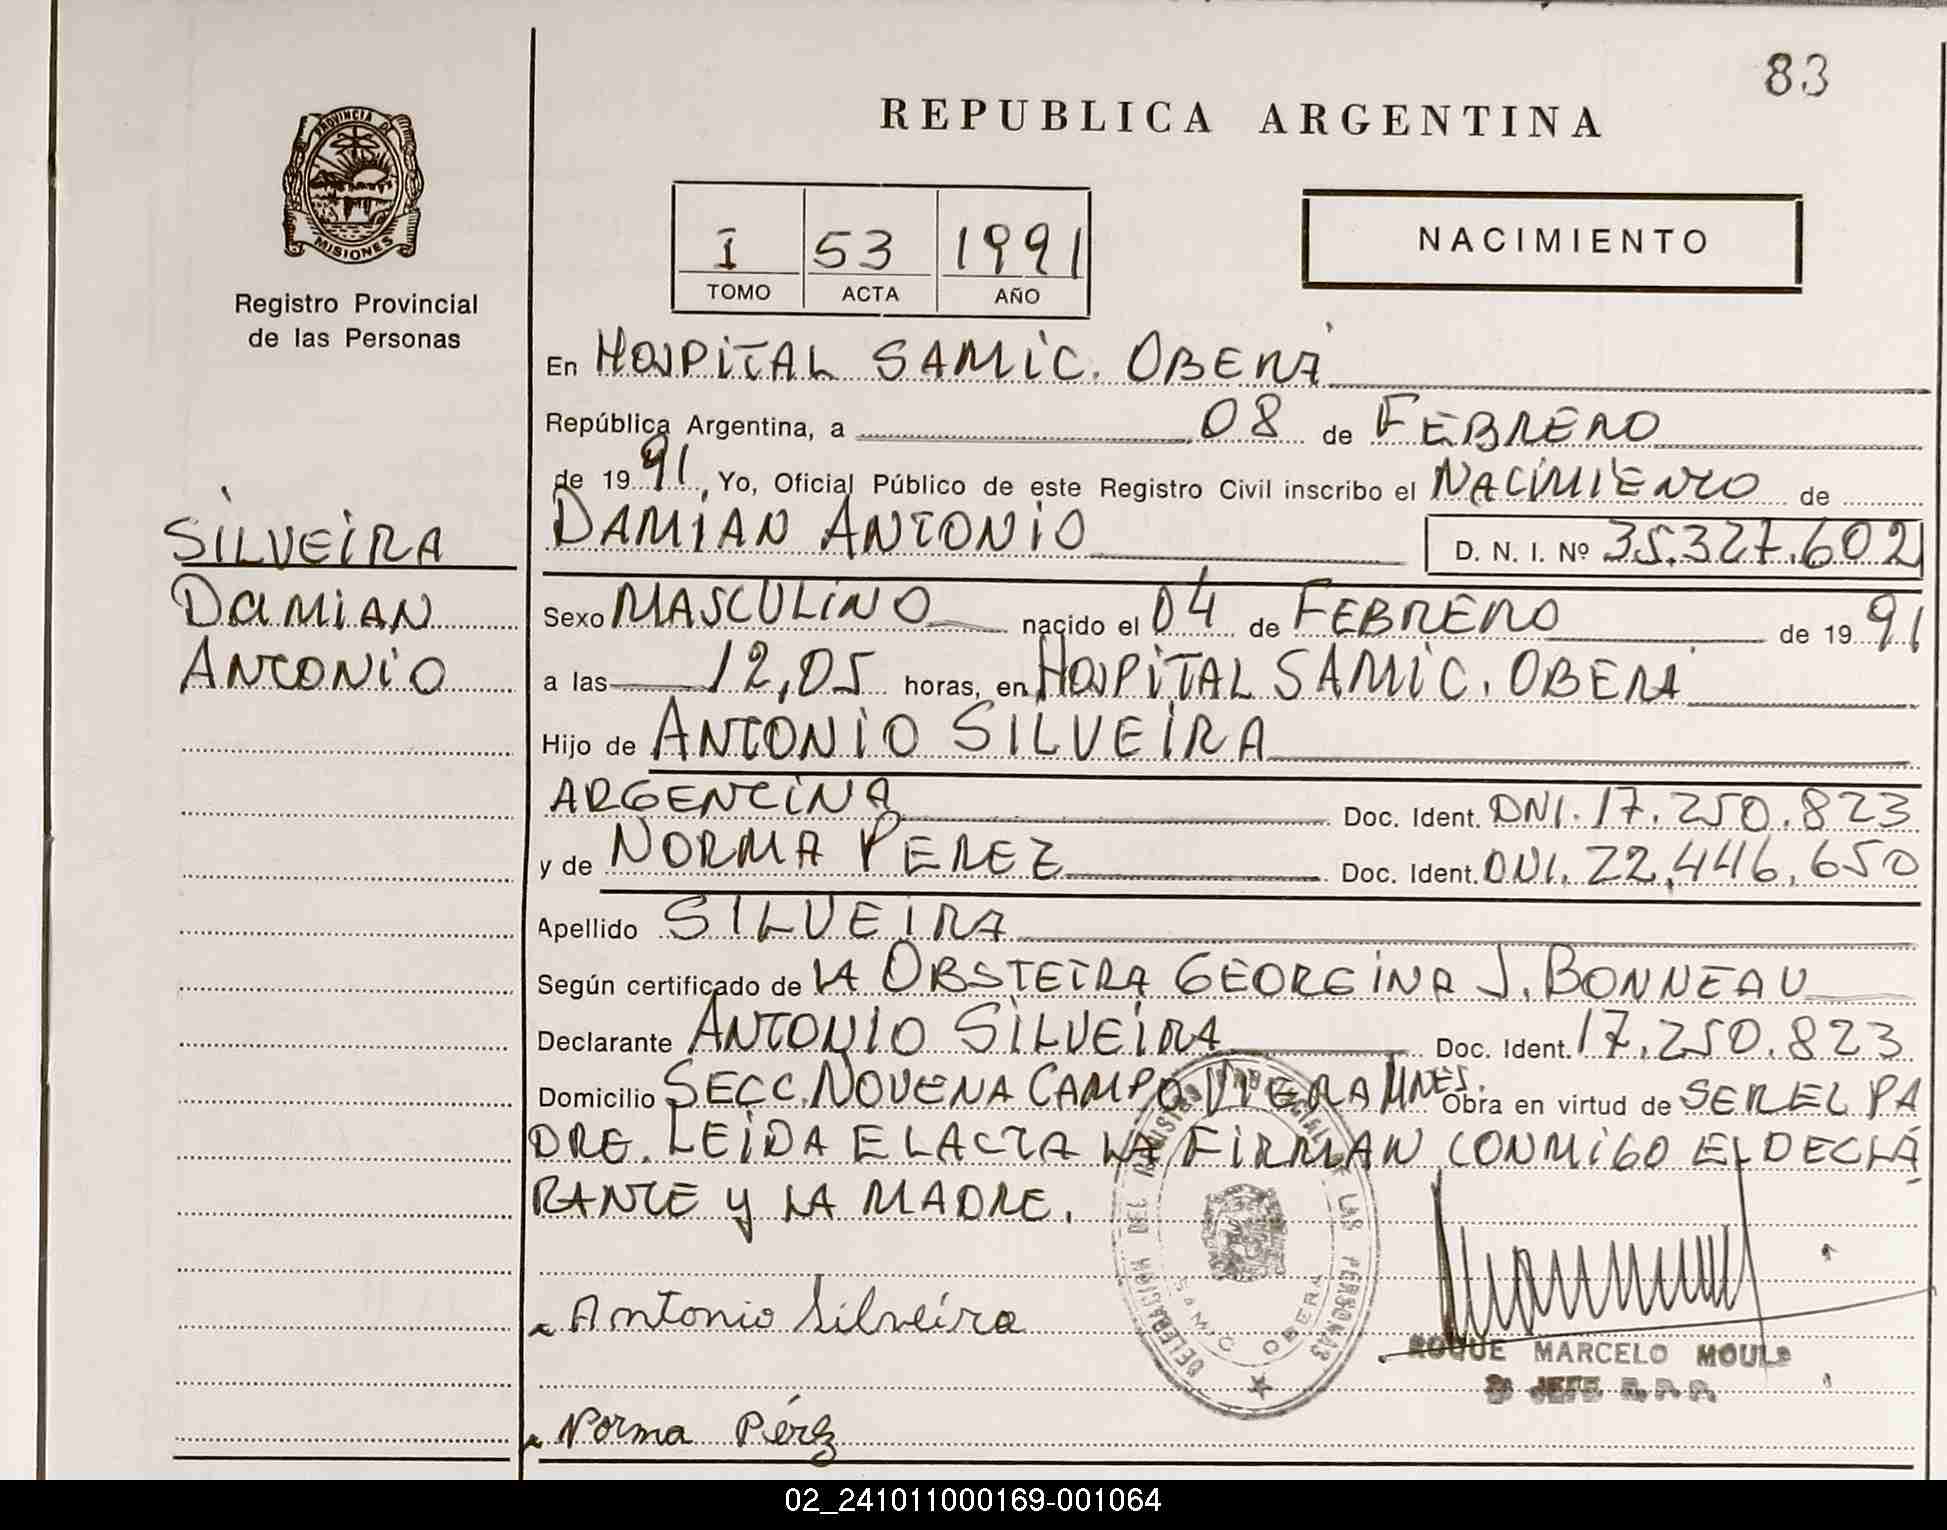 83
REPUBLICA ARGENTINA
PROVINCIA DE
MISIONES
Registro Provincial
de las Personas
I 53 1991
TOMO ACTA AÑO
NACIMIENTO
En HOSPITAL SAMIC. OBERÁ
República Argentina, a 08 de FEBRERO
de 1991, Yo, Oficial Público de este Registro Civil inscribo el NACIMIENTO de
DAMIAN ANTONIO D. N. I. Nº 35.327.602
SILVEIRA
DAMIAN
ANTONIO
Sexo MASCULINO nacido el 04 de FEBRERO de 1991
a las 12,05 horas, en HOSPITAL SAMIC. OBERÁ
Hijo de ANTONIO SILVEIRA
ARGENTINA Doc. Ident. DNI. 17.250.823
y de NORMA PEREZ Doc. Ident. DNI. 22.446.650
Apellido SILVEIRA
Según certificado de LA OBSTETRA GEORGINA J. BONNEAU
Declarante ANTONIO SILVEIRA Doc. Ident. 17.250.823
Domicilio SECC. NOVENA CAMPO VIERA MNES. Obra en virtud de SER EL PA
DRE. LEIDA EL ACTA LA FIRMAN CONMIGO EL DECLA
RANTE Y LA MADRE.
DELEGACION DEL REGISTRO PROVINCIAL DE LAS PERSONAS
SAMIC OBERA
Antonio Silveira
ROQUE MARCELO
JEFE R. P. P.
Norma Pérez
02_241011000169-001064